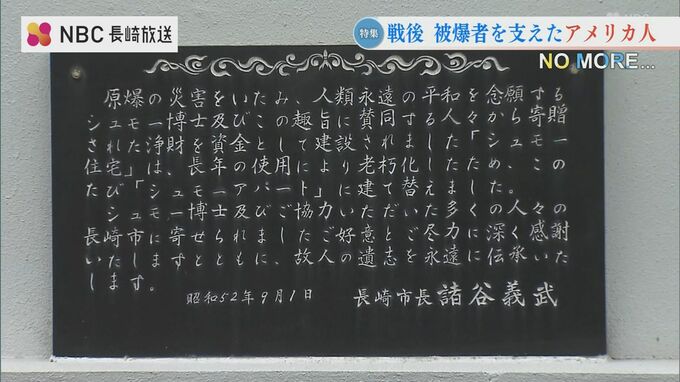 NBC 長崎放送
特集 戦後 被爆者を支えたアメリカ人
NO MORE...
原爆の災害をいたみ 人類永遠の平和を念願する
シュモー博士及びこの趣旨に賛同した人々から寄贈
された浄財を資金として建設した「シュモー
住宅」は、長年の使用により老朽化したため、この
たび「シュモーアパート」に建て替えました。
シュモー博士及びご協力いただいた多くの人々の
長崎市に寄せられましたご好意とご尽力に深く感謝
いたしますとともに、故人の遺志を永遠に伝承いた
します。
昭和52年9月1日
長崎市長 諸谷義武